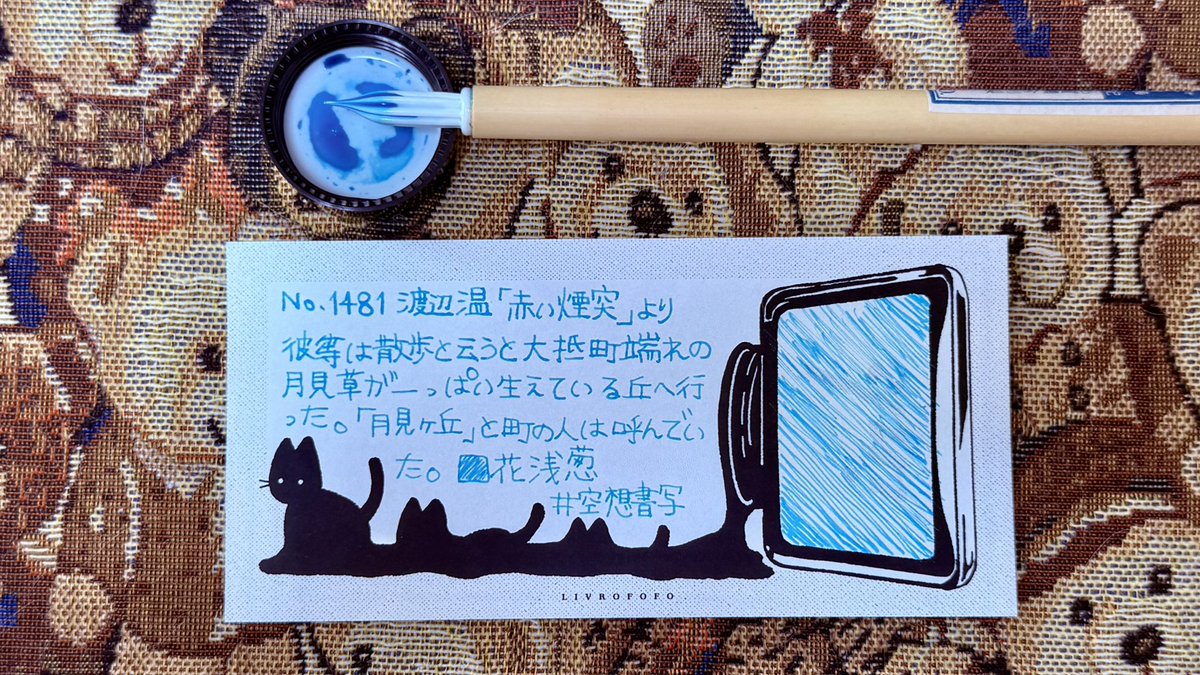 No.1481 渡辺温「赤い煙突」より
彼等は散歩と云うと大抵町端れの
月見草が一っぱい生えている丘へ行
った。「月見ヶ丘」と町の人は呼んでい
た。 花浅葱
#空想書写
LIVROFOFO